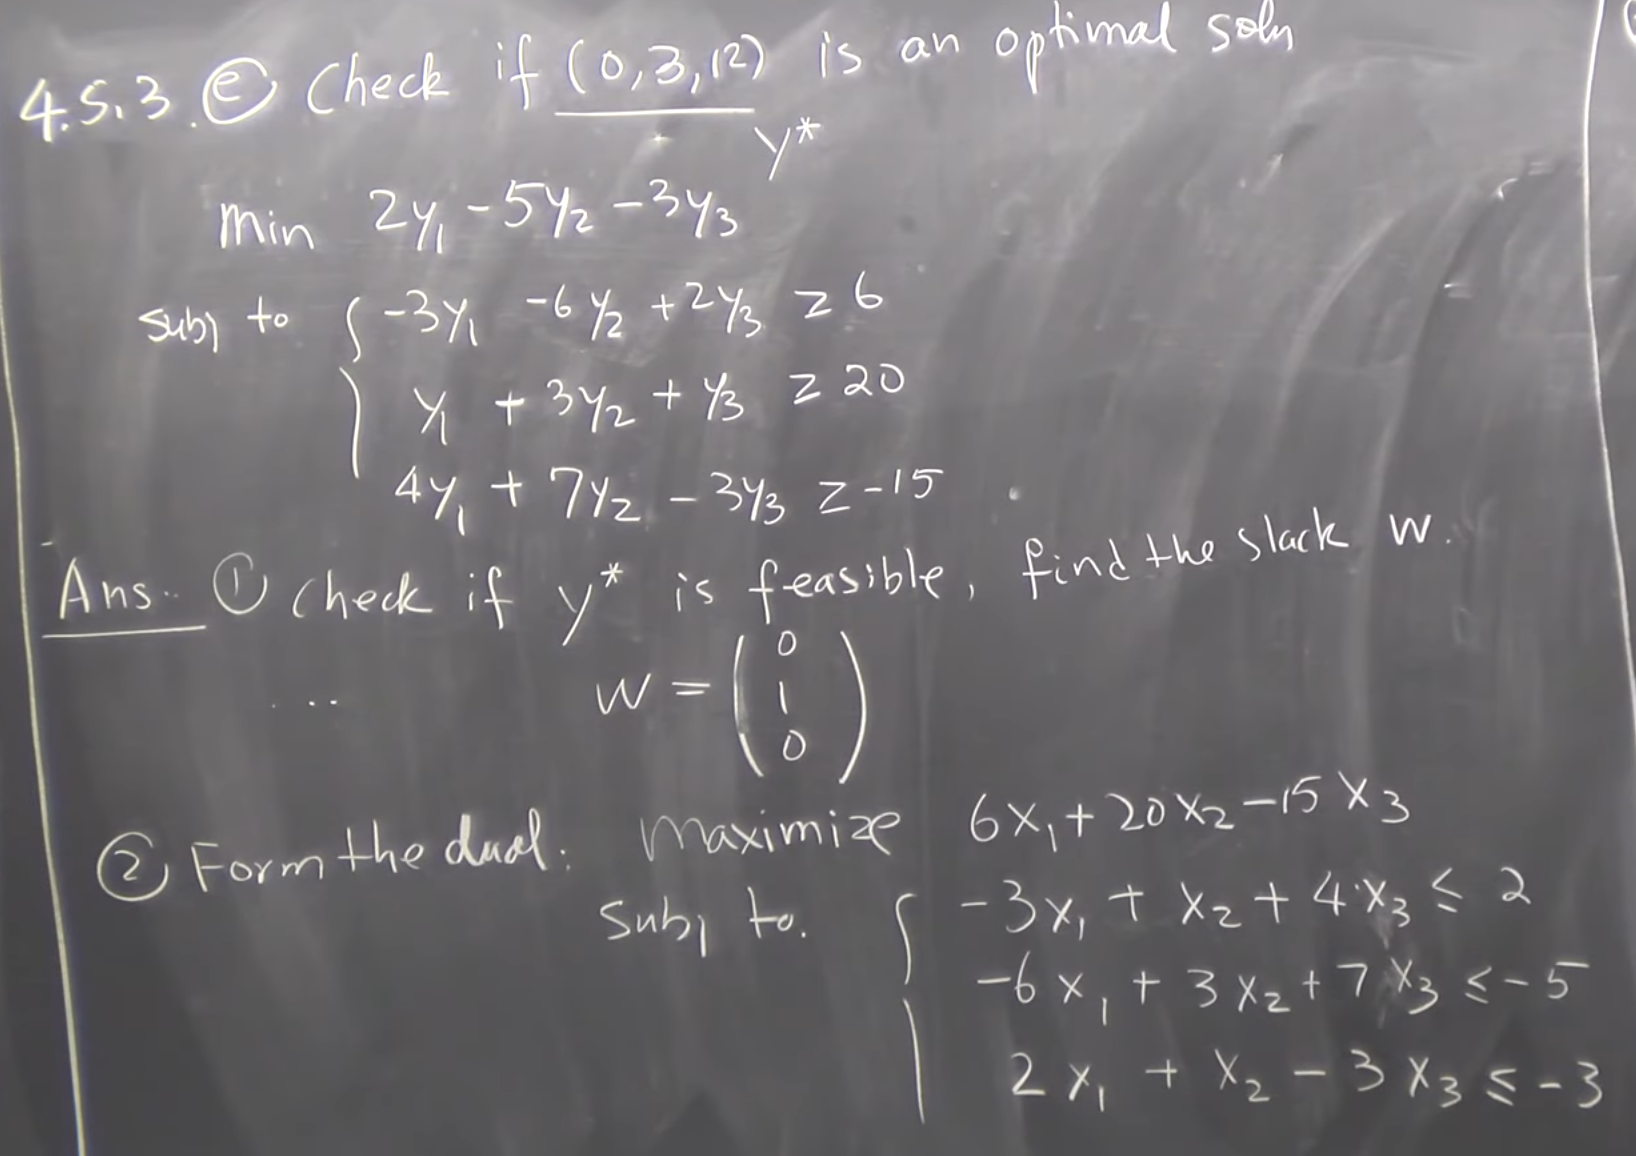 4.5.3. ⓔ Check if (0,3,12) is an optimal soln
y*
Min 2y₁ -5y₂ -3y₃
subj to { -3y₁ -6y₂ +2y₃ ≥ 6
y₁ + 3y₂ + y₃ ≥ 20
4y₁ + 7y₂ - 3y₃ ≥ -15
Ans. ① Check if y* is feasible, find the slack w.
... w = (0 1 0)
② Form the dual: Maximize 6x₁ + 20x₂ -15x₃
Subj to. { -3x₁ + x₂ + 4x₃ ≤ 2
-6x₁ + 3x₂ + 7x₃ ≤ -5
2x₁ + x₂ - 3x₃ ≤ -3